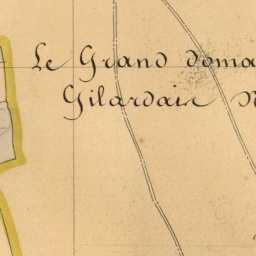 Le Grand doma
Gilardais N